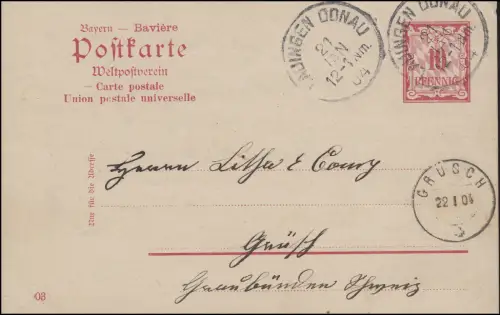 Bayern – Bavière
Postkarte
Weltpostverein
– Carte postale
Union postale universelle
LAUINGEN DONAU
21
JAN
12-1 Nm.
04
10
PFENNIG
Nur für die Adresse
Herrn Litha & Comp
GRÜSCH
22 I 04
Grüsch
Graubünden Schweiz
03